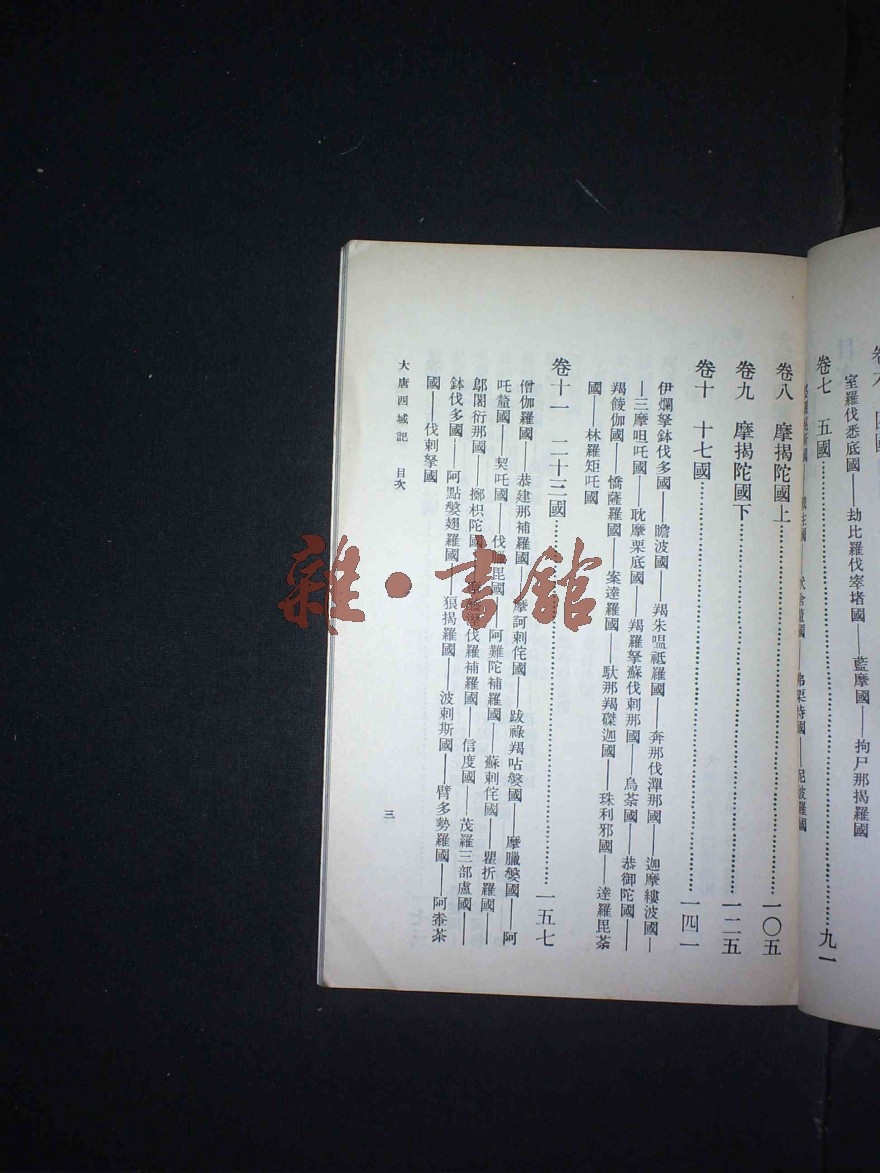 室羅伐悉底國——劫比羅伐窣堵國——藍摩國——拘尸那揭羅國
卷七　五國……九一
卷八　摩揭陀國上……一〇五
卷九　摩揭陀國下……一二五
卷十　十七國……一四一
伊爛拏鉢伐多國——瞻波國——羯朱嗢祗羅國——奔那伐潬那國——迦摩縷波國—
—三摩呾吒國——耽摩栗底國——羯羅拏蘇伐剌那國——烏荼國——恭御陀國——
羯䬆伽國——憍薩羅國——案達羅國——馱那羯磔迦國——珠利邪國——達羅毘荼
國——秣羅矩吒國
卷十一　二十三國……一五七
僧伽羅國——恭建那補羅國——摩訶剌侘國——跋祿羯呫婆國——摩臘婆國——阿
吒釐國——契吒國——伐臘毘國——阿難陀補羅國——蘇剌侘國——瞿折羅國——
鄔闍衍那國——擲枳陀國——伐羅補羅國——信度國——茂羅三部盧國——
鉢伐多國——阿點婆翅羅國——狼揭羅國——波剌斯國——臂多勢羅國——阿軬荼
國——伐剌拏國
大唐西域記　目次
三
雜·書館